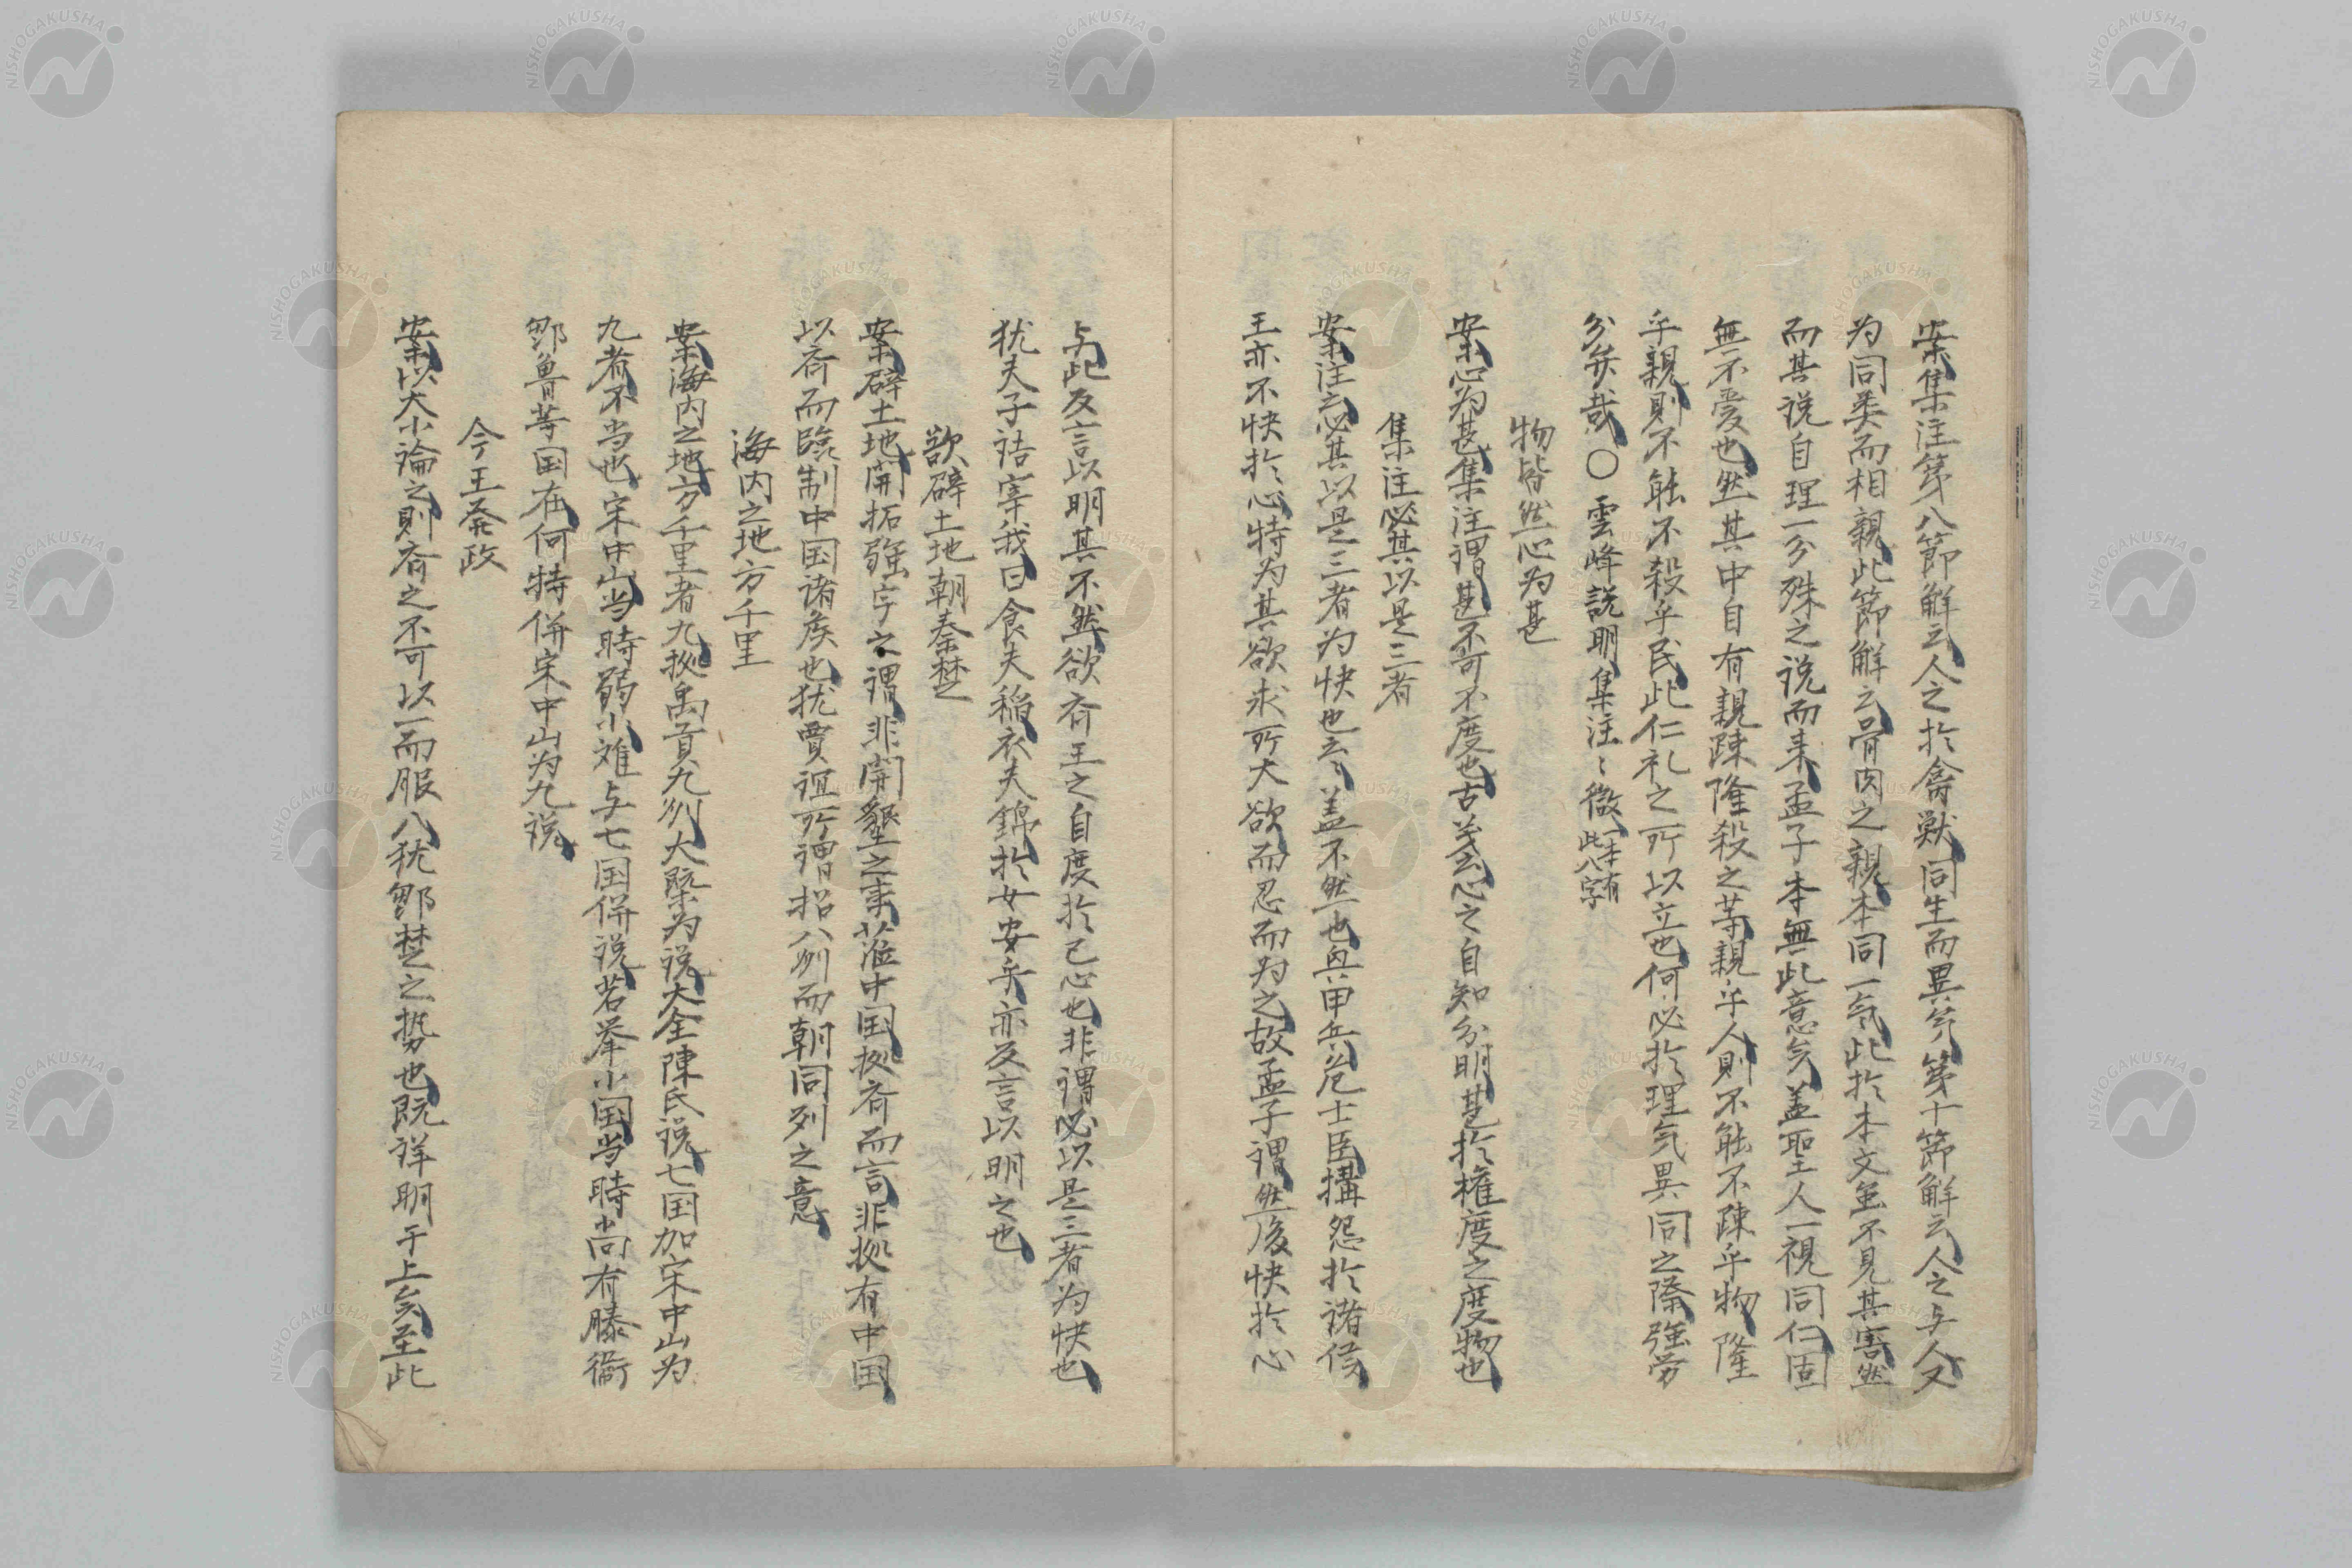 案集注第八節解云人之於禽獣同生而異矣第十節解云人之与人又
为同类而相親此節解云骨肉之親本同一気此於本文虽不見其害然
而其说自理一分殊之说而来孟子本無此意矣盖聖人一視同仁固
無不愛也然其中自有親疎隆殺之等親乎人則不能不疎乎物隆
乎親則不能不殺乎民此仁礼之所以立也何必於理気異同之際強労
分弁哉〇雲峰説明集注々微一本有此八字
物皆然心为甚
案心为甚集注謂甚不可不度也古义云心之自知分明甚於権度之度物也
集注必其以是三者
案注云必其以是三者为快也云々盖不然也興甲兵危士臣搆怨於諸侯
王亦不快於心特为其欲求所大欲而忍而为之故孟子謂然後快於心
与此反言以明其不然欲斉王之自度於己心也非謂必以是三者为快也
犹夫子诘宰我曰食夫稲衣夫錦於女安乎亦反言以明之也
欲辟土地朝秦楚
案辟土地開拓强宇之謂非開墾之事莅中国拠斉而言非拠有中国
以斉而臨制中国诸侯也犹賈谊所謂招八州而朝同列之意
海内之地方千里
案海内之地方千里者九拠禹貢九州大槩为说大全陳氏说七国加宋中山为
九者不当也宋中山当時弱小难与七国併说若挙小国当時尚有滕衞
鄒魯等国在何特併宋中山为九说
今王発政
案以大小論之則斉之不可以一而服八犹鄒楚之势也既详明于上矣至此